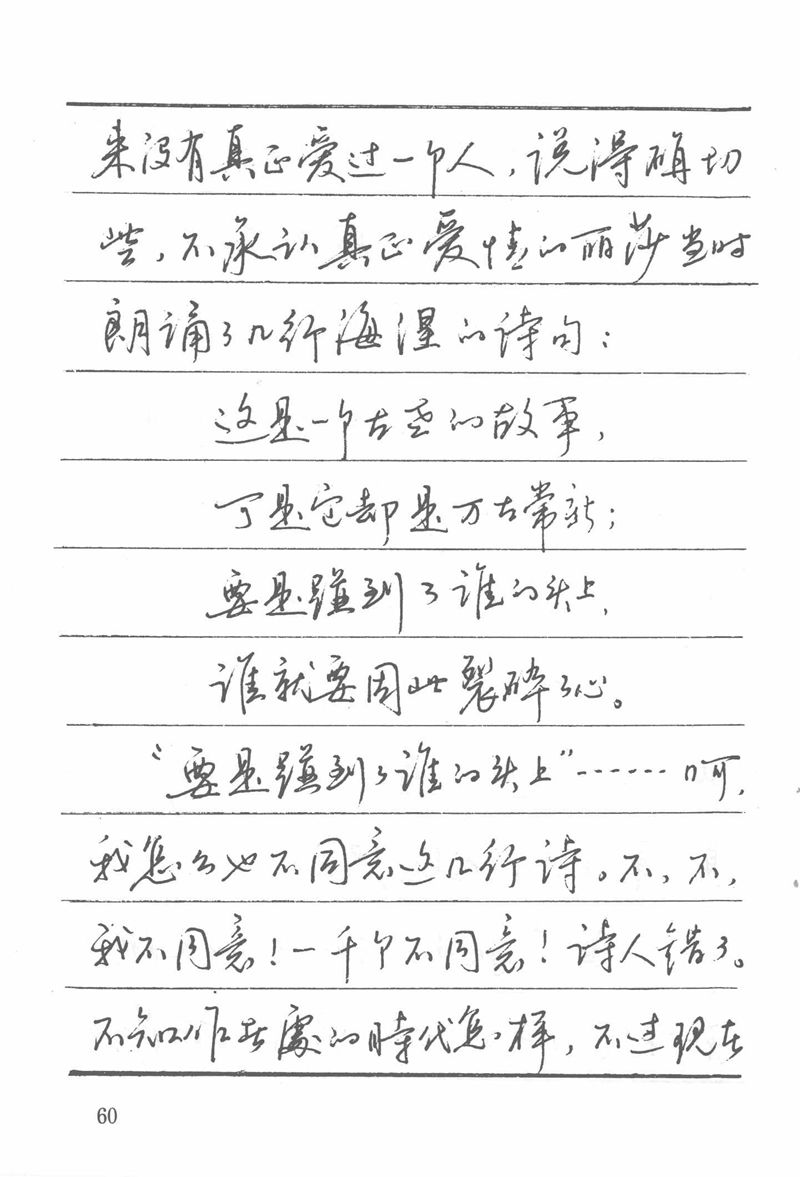 来没有真正爱过一个人，说得确切
些，不承认真正爱情的丽莎当时
朗诵了几行海涅的诗句：
这是一个古老的故事，
可是它却是万古常新；
要是碰到了谁的头上，
谁就要因此裂碎了心。
“要是碰到了谁的头上”……呵，
我怎么也不同意这几行诗。不，不，
我不同意！一千个不同意！诗人错了。
不知他所处的時代怎样，不过现在
60